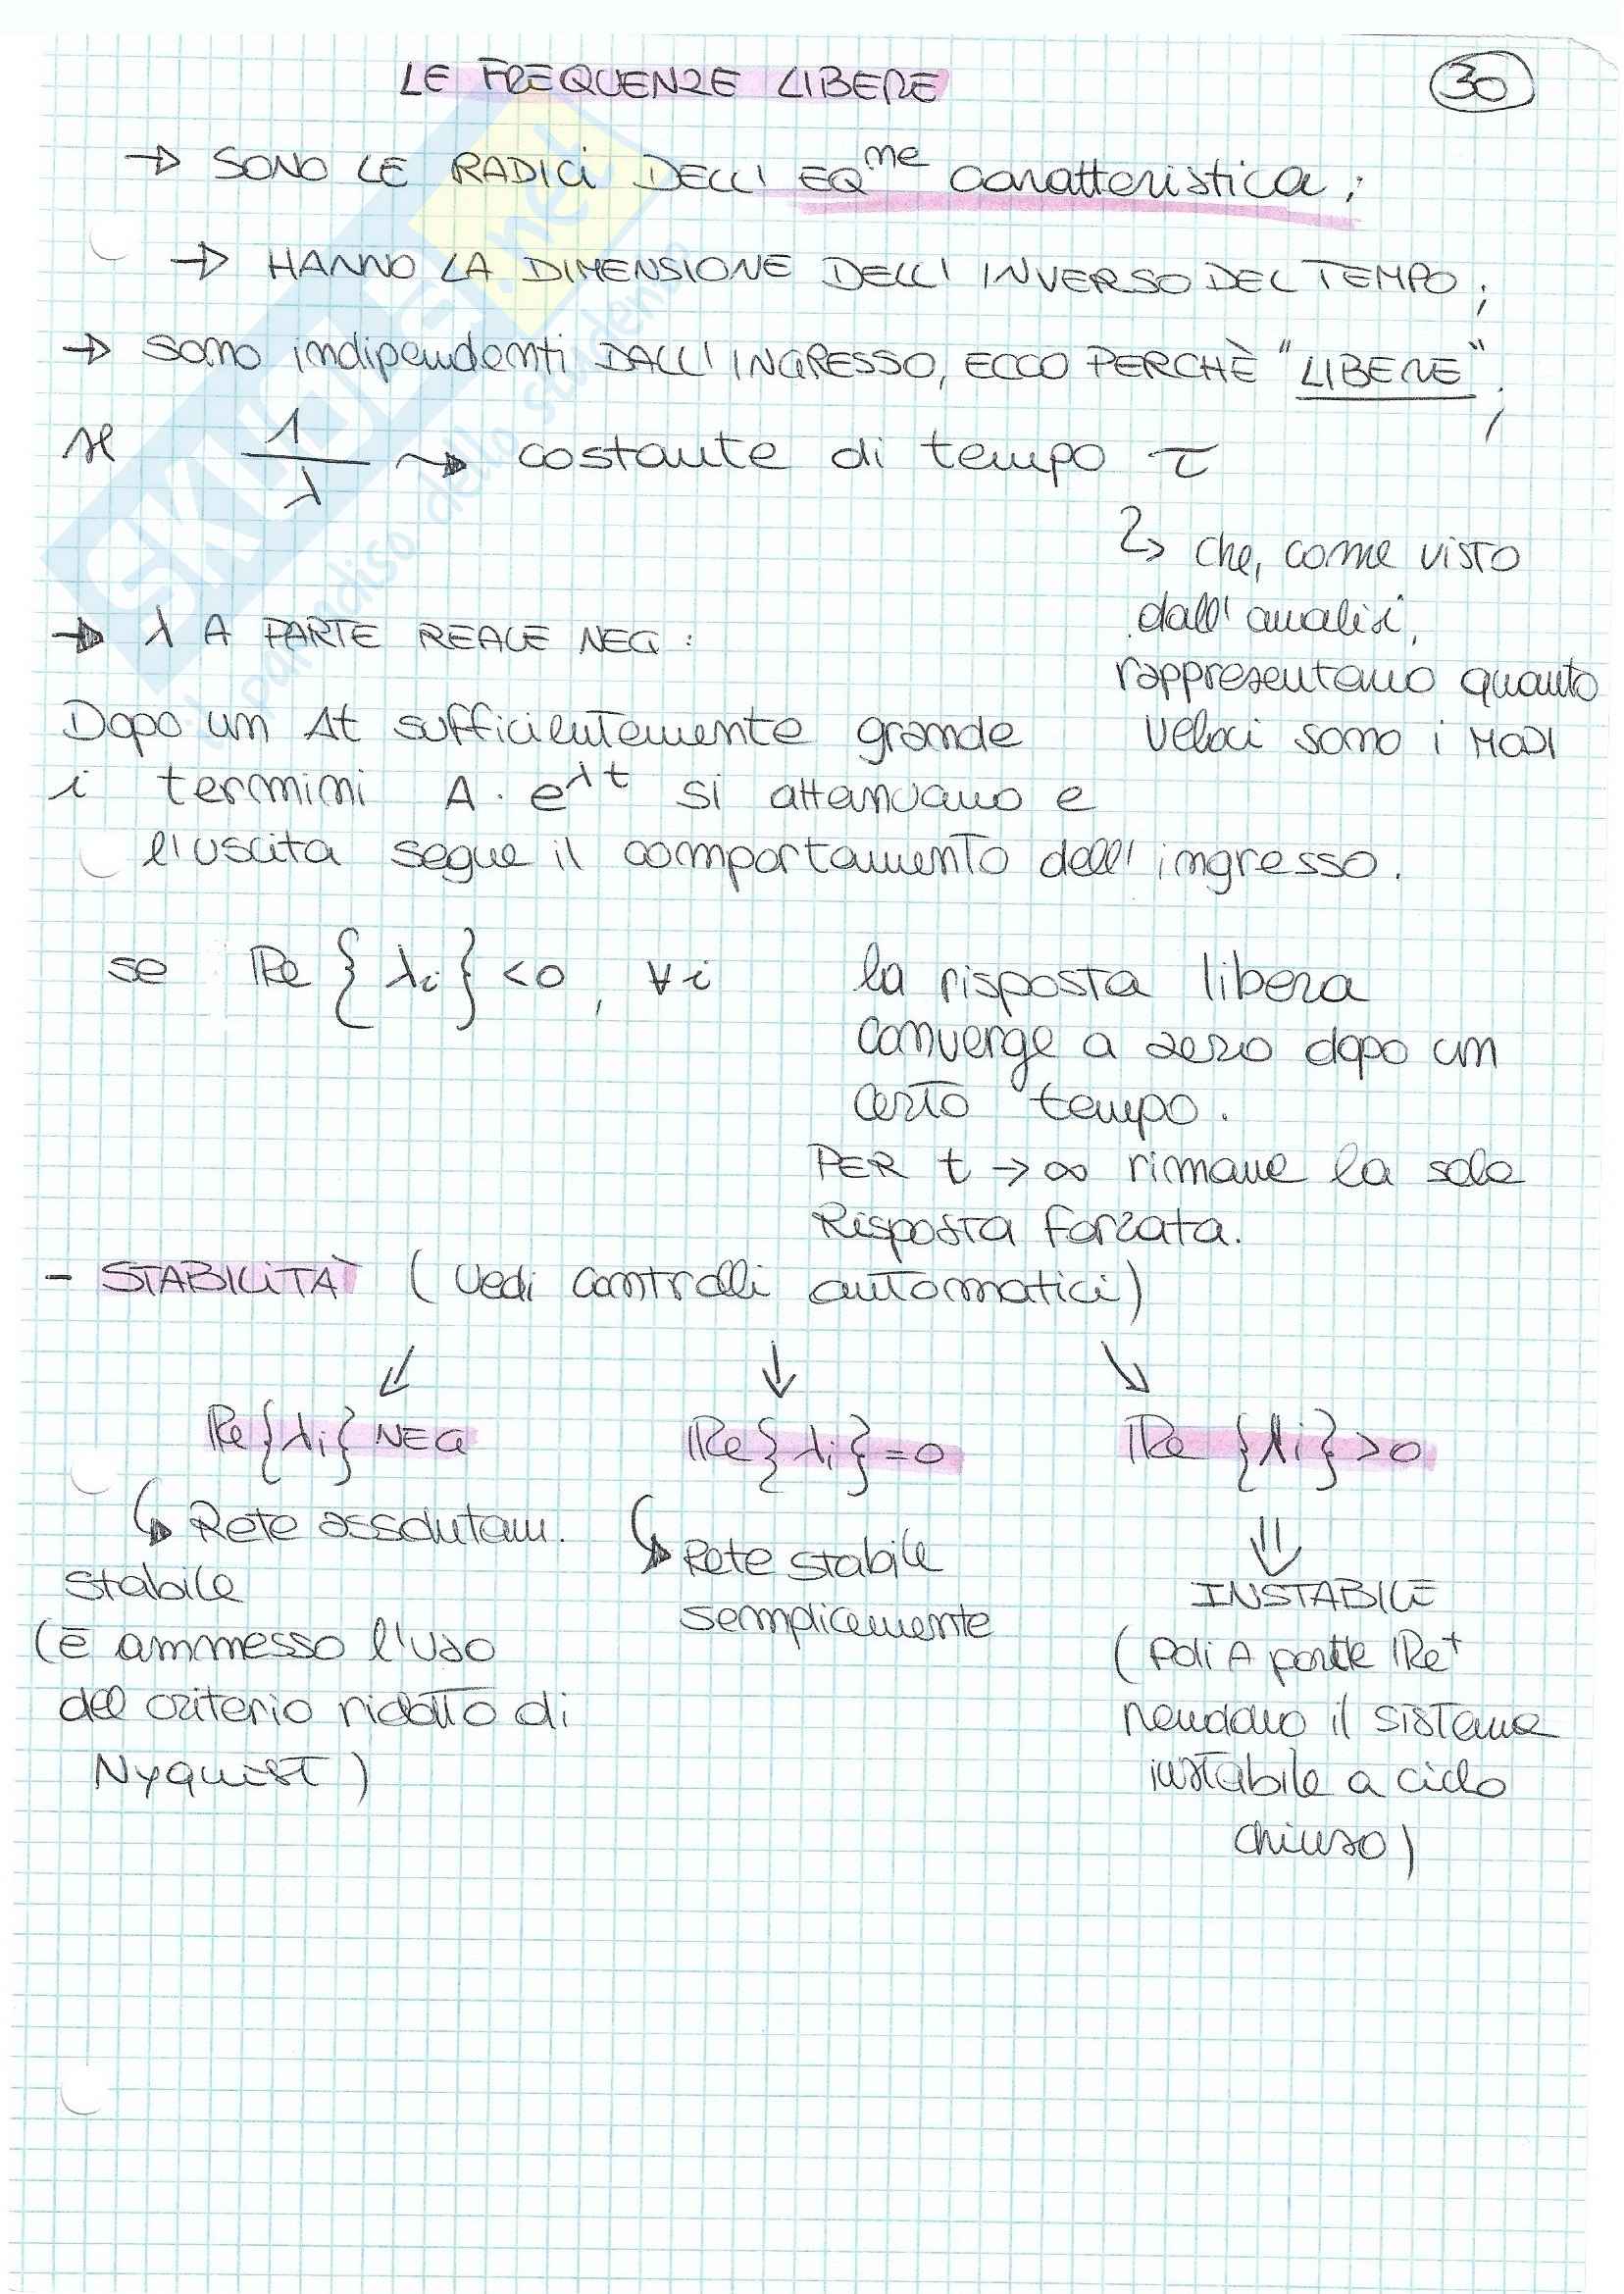 LE FREQUENZE LIBERE
30
→ SONO LE RADICI DELL' EQ.ne caratteristica;
→ HANNO LA DIMENSIONE DELL' INVERSO DEL TEMPO;
→ sono indipendenti DALL'INGRESSO, ECCO PERCHÈ "LIBERE";
il 1/λ ⇝ costante di tempo τ
↳ che, come visto
dall'analisi,
rappresentano quanto
veloci sono i MODI
→ λ A PARTE REALE NEG:
Dopo un Δt sufficientemente grande
i termini A · e^λt si attenuano e
l'uscita segue il comportamento dell'ingresso.
se Re{λi} < 0, ∀i
la risposta libera
converge a zero dopo un
certo tempo.
PER t → ∞ rimane la sola
Risposta forzata.
- STABILITÀ (vedi controlli automatici)
↙ ↓ ↘
Re{λi} NEG Re{λi} = 0 Re{λi} > 0
↳ Rete assolutam.
stabile
(è ammesso l'uso
del criterio ridotto di
Nyquist)
↳ Rete stabile
semplicemente
⇓
INSTABILE
(poli A parte Re+
rendono il sistema
instabile a ciclo
chiuso)
SKUOLA.net
il paradiso dello studente